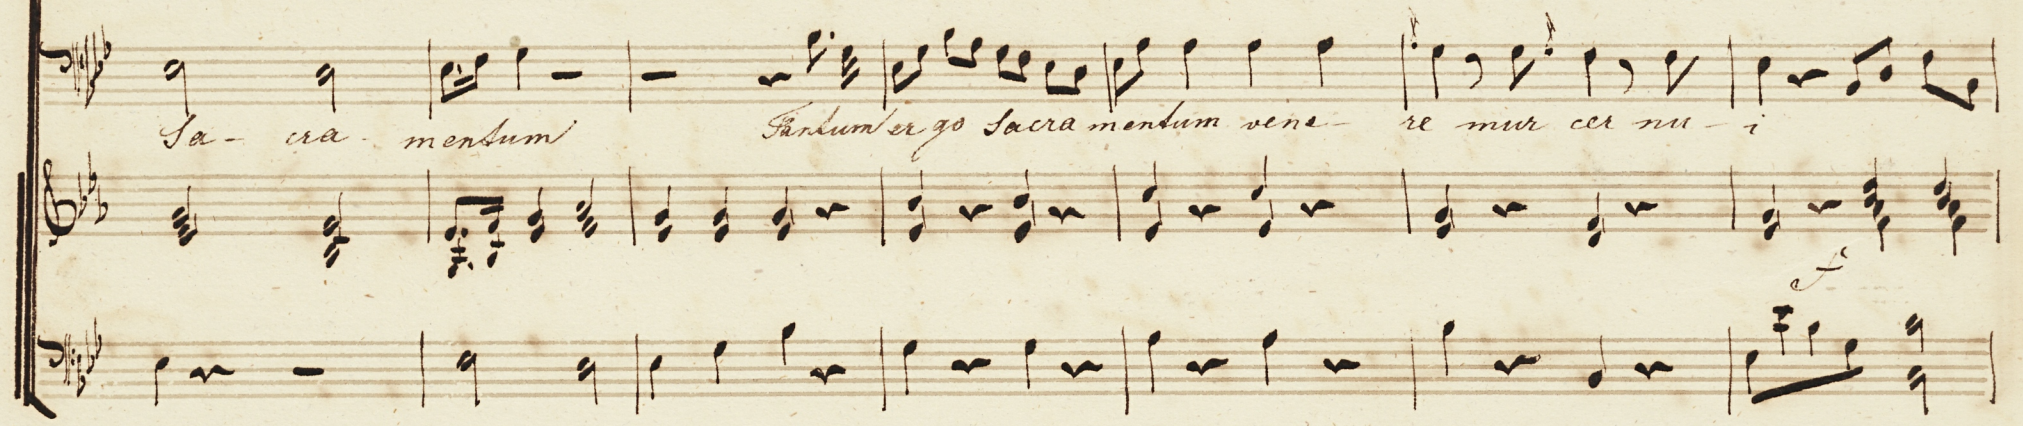 Sa - cra - mentum Tantum ergo Sacramentum vene - re mur cer nu - i
f